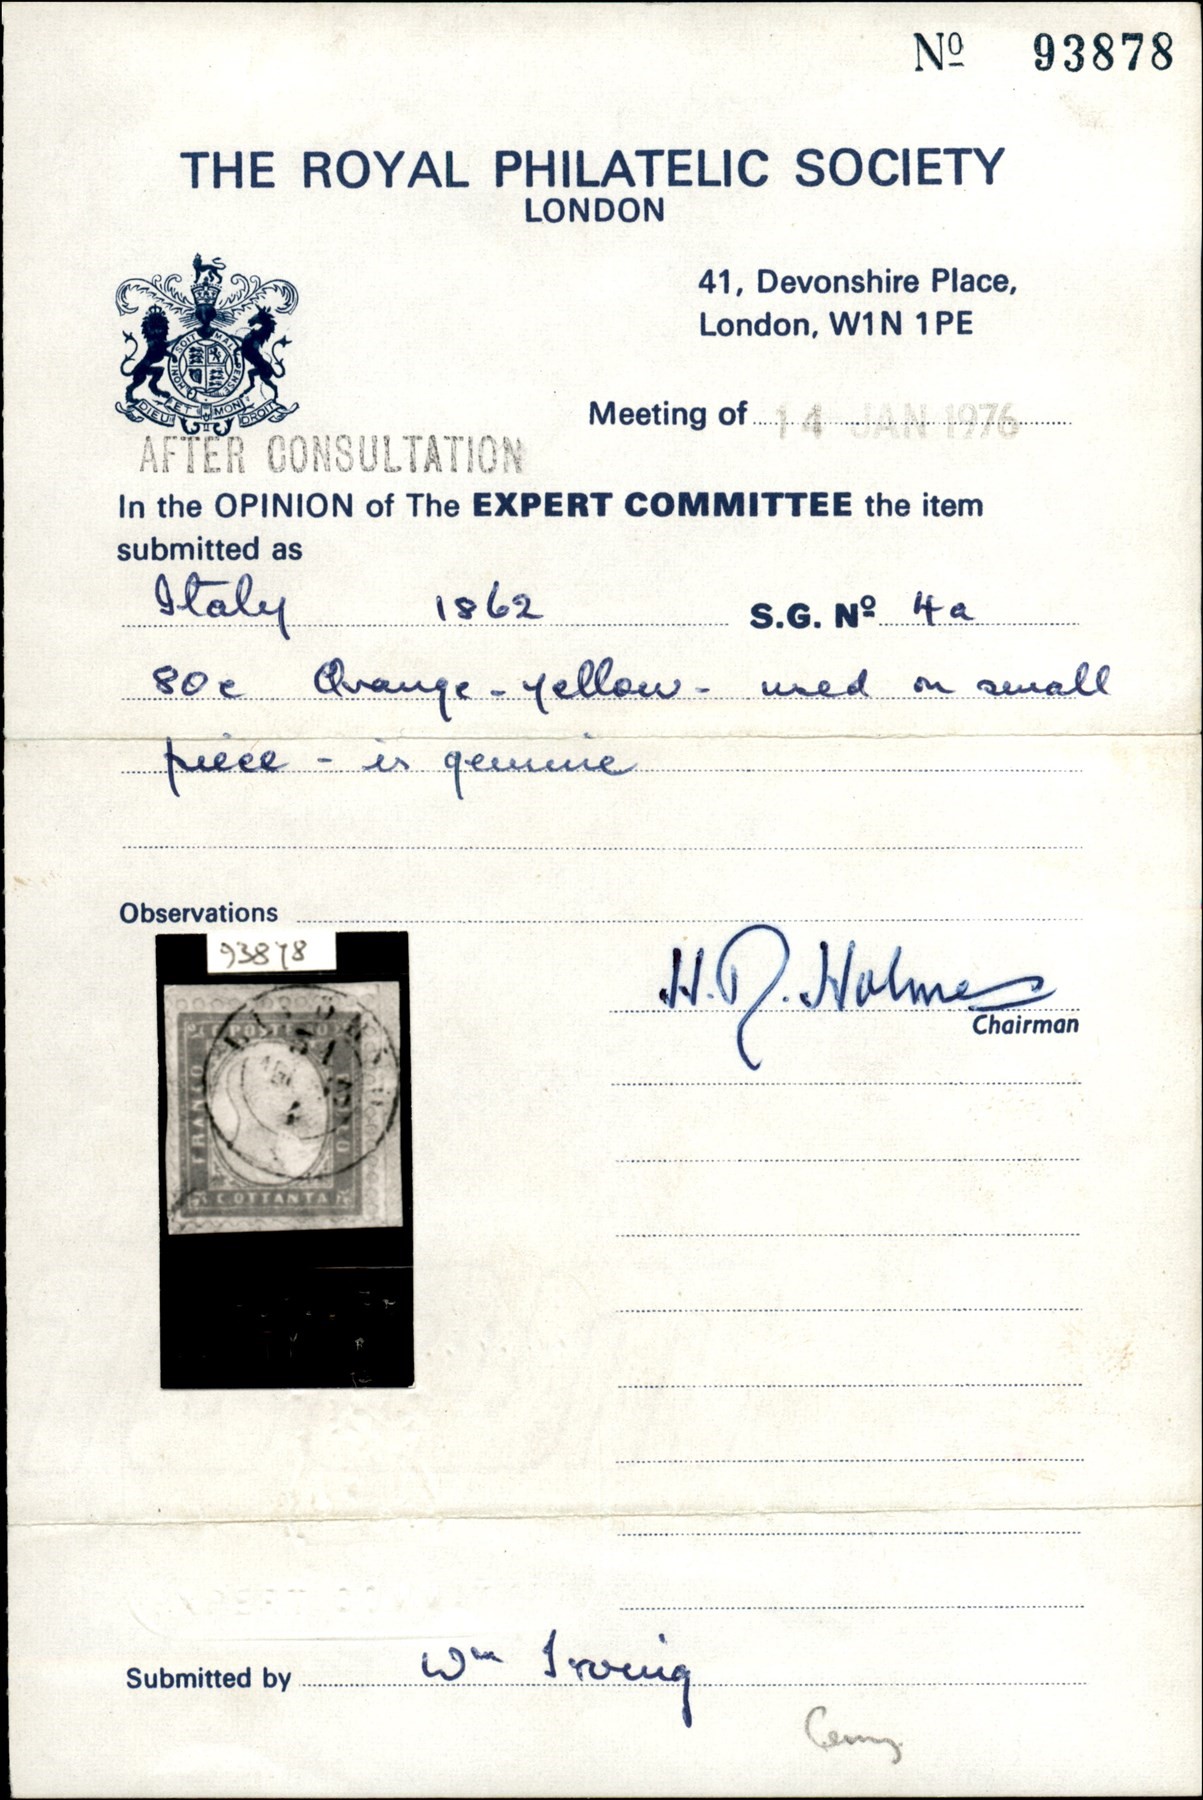 Nº 93878
THE ROYAL PHILATELIC SOCIETY
LONDON
41, Devonshire Place,
London, W1N 1PE
HONI SOIT MAL PENSE
DIEU ET MON DROIT
Meeting of 14 JAN 1976
AFTER CONSULTATION
In the OPINION of The EXPERT COMMITTEE the item
submitted as
Italy 1862 S.G. Nº 4a
80c Orange-yellow - used on small
piece - is genuine
Observations
93878
H.R. Holmes
Chairman
POSTE
FRANCO BOLLO
C. OTTANTA
Submitted by Wm Irving